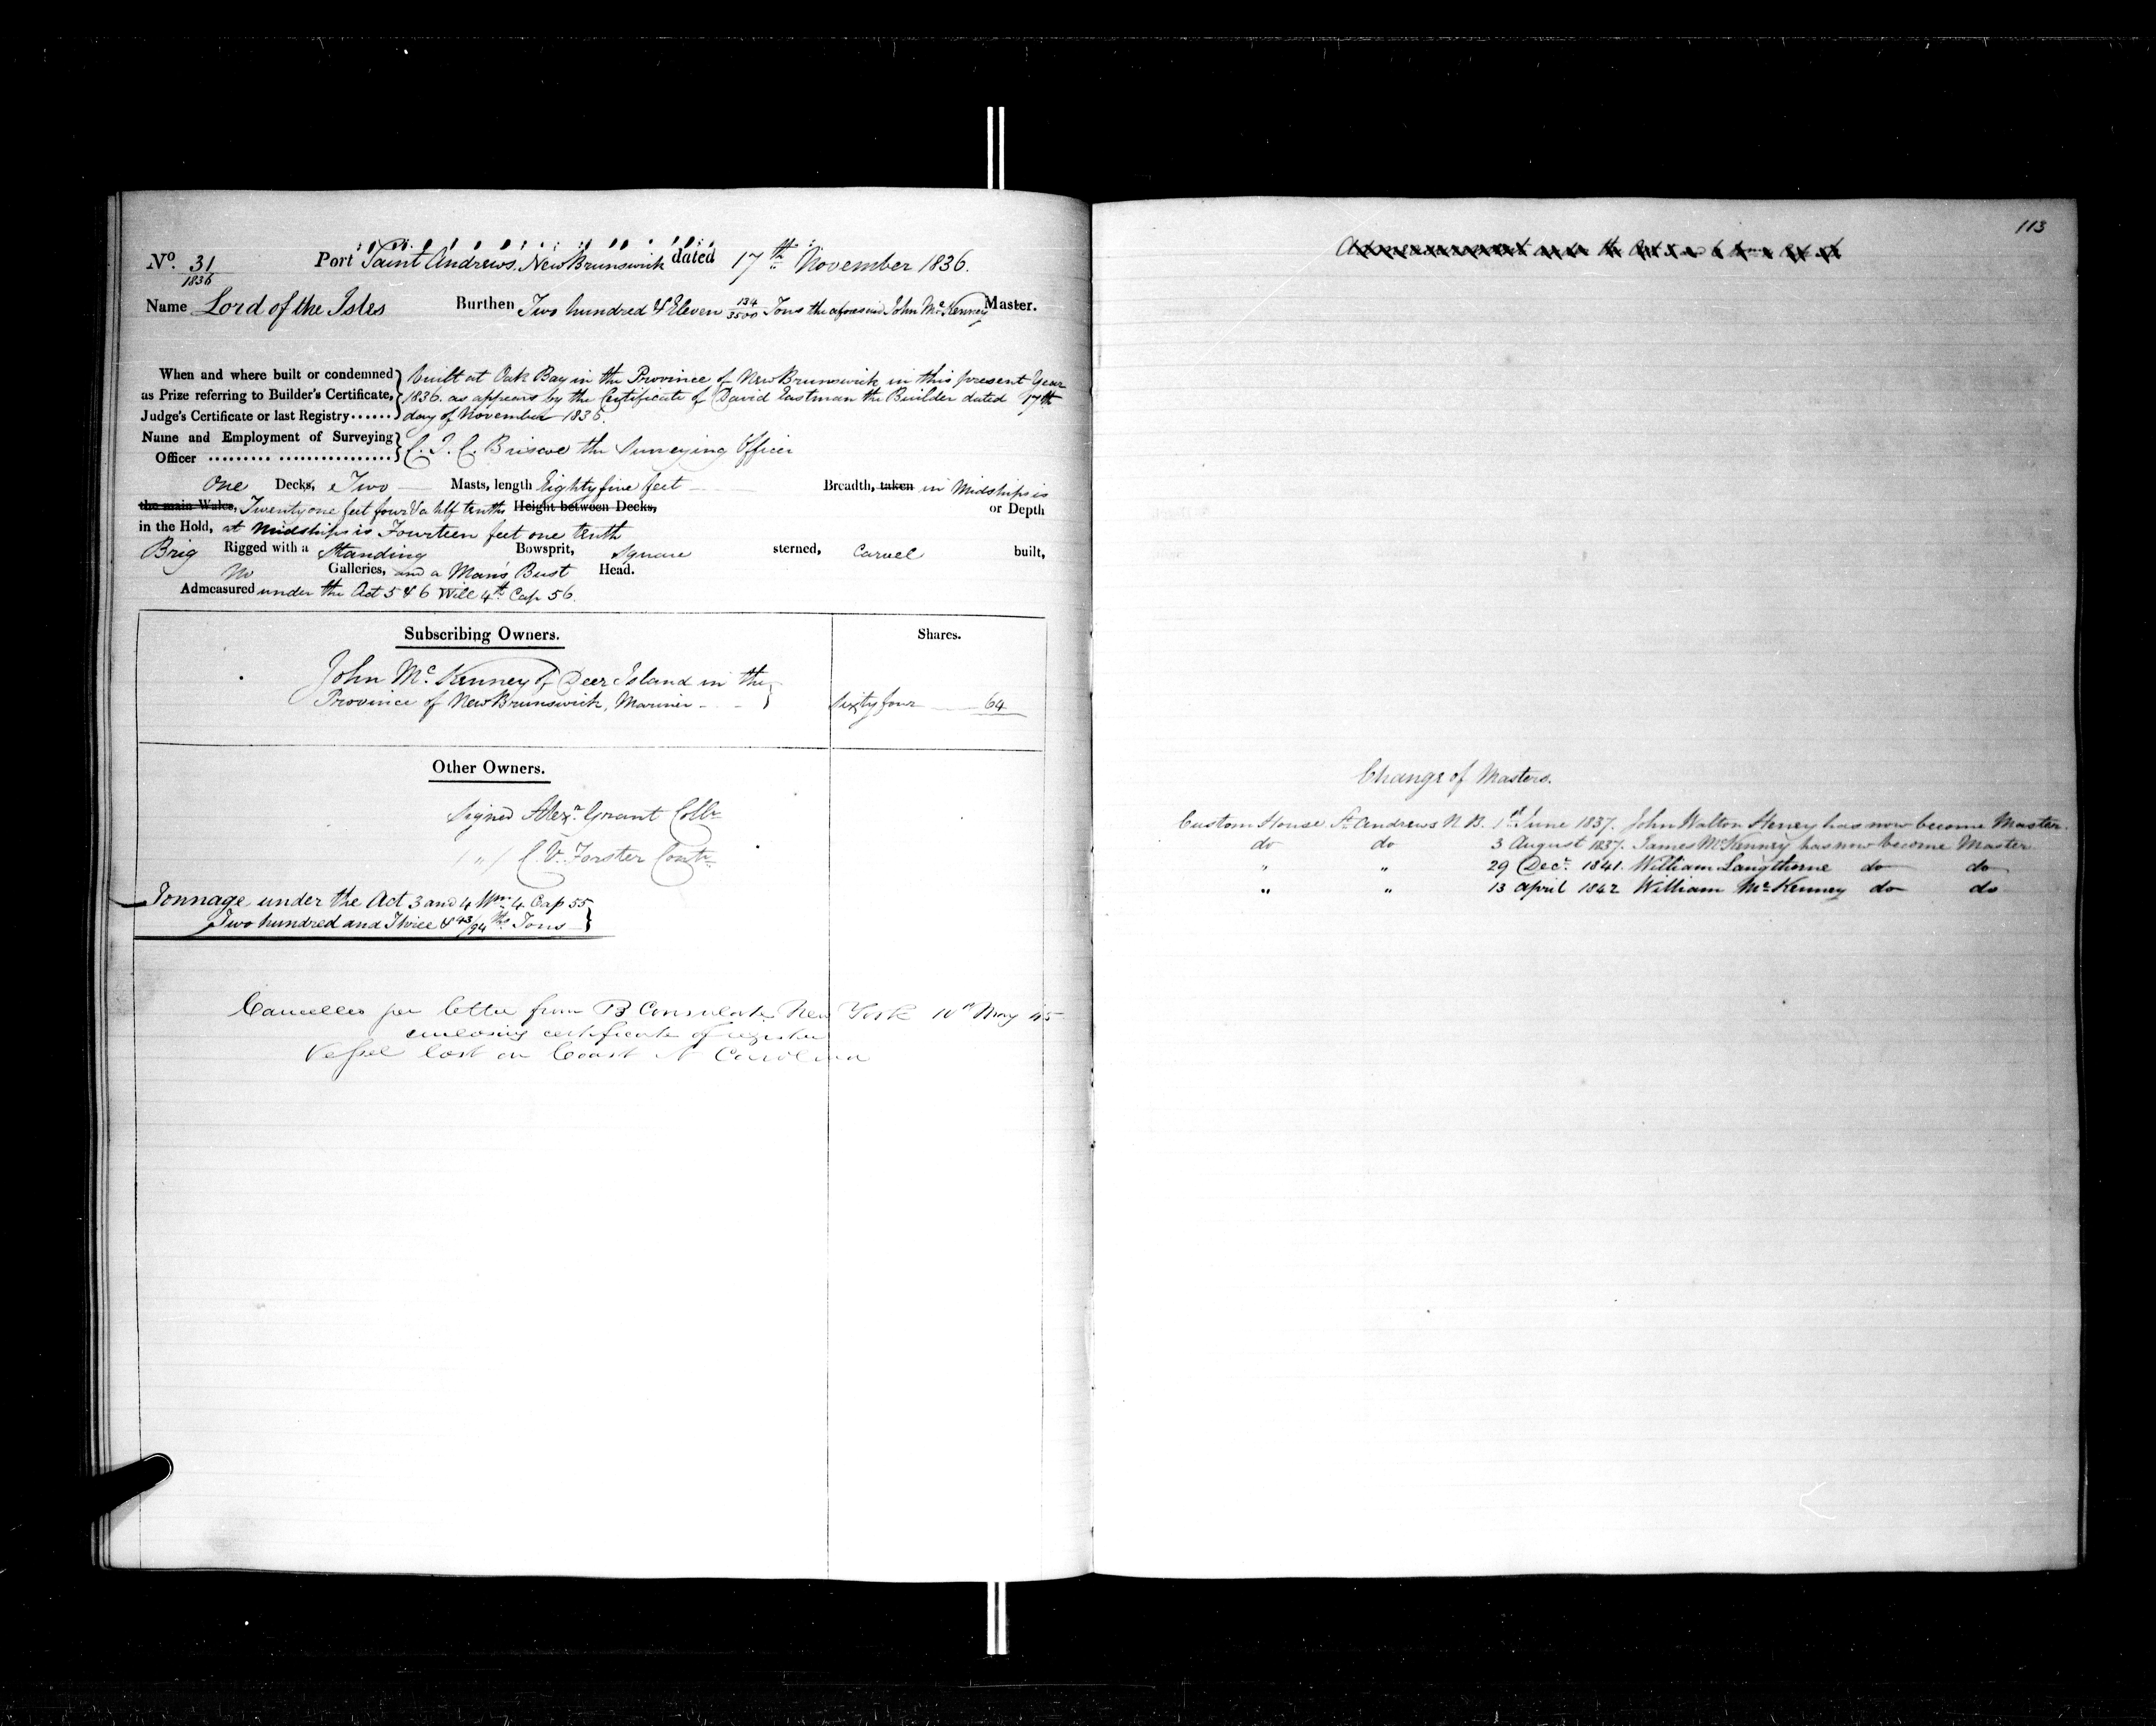 No. 31 Port Saint Andrews, New Brunswick dated 17th November 1836.
1836
Name Lord of the Isles Burthen Two hundred & Eleven 134/3500 Tons the aforesaid John McKenney Master.
When and where built or condemned as Prize referring to Builder's Certificate, Judge's Certificate or last Registry......
built at Oak Bay in the Province of New Brunswick in this present Year
1836. as appears by the Certificate of David Eastman the Builder dated 17th
day of November 1836.
Name and Employment of Surveying Officer
C. J. C. Briscoe the Surveying Officer
One Decks, Two Masts, length Eighty five feet Breadth, taken in Midships is
the main Wales, Twenty one feet four & a half tenths Height between Decks, or Depth
in the Hold, at Midships is Fourteen feet one tenth
Brig Rigged with a Standing Bowsprit, Square sterned, Carvel built,
No Galleries, and a Man's Bust Head.
Admeasured under the Act 5 & 6 Will 4th Cap 56.
Subscribing Owners. Shares.
John McKenney of Deer Island in the
Province of New Brunswick, Mariner Sixty four 64
Other Owners.
Signed Alexr. Grant Collr
" C. V. Forster Contr
Tonnage under the Act 3 and 4 Wm. 4 Cap 55
Two hundred and Three & 43/94ths Tons
Cancelled per letter from B Consulate New York 10th May 45
enclosing certificate of register
Vessel lost on Coast N Carolina
113
Change of Masters.
Custom House St. Andrews N. B. 1st June 1837. John Walton Heney has now become Master.
do do 3 August 1837. James McKenney has now become Master
" " 29 Decr. 1841. William Langthorne do do
" " 13 April 1842 William McKenney do do